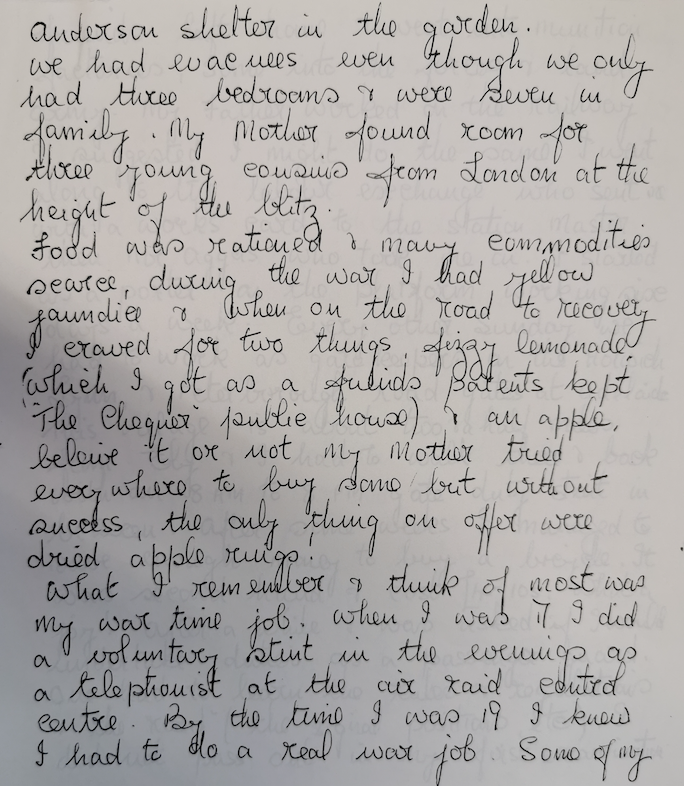 anderson shelter in the garden.
we had evacuees even though we only
had three bedrooms & were seven in
family. My Mother found room for
three young cousins from London at the
height of the blitz.
Food was rationed & many commodities
scarce, during the war I had yellow
jaundice & when on the road to recovery
I craved for two things fizzy lemonade
(which I got as a friends parents kept
"The Chequer" public house) & an apple,
beleive it or not my Mother tried
everywhere to buy some but without
success, the only thing on offer were
dried apple rings!
What I remember & think of most was
my war time job. When I was 17 I did
a voluntary stint in the evenings as
a telephonist at the air raid control
centre. By the time I was 19 I knew
I had to do a real war job. Some of my